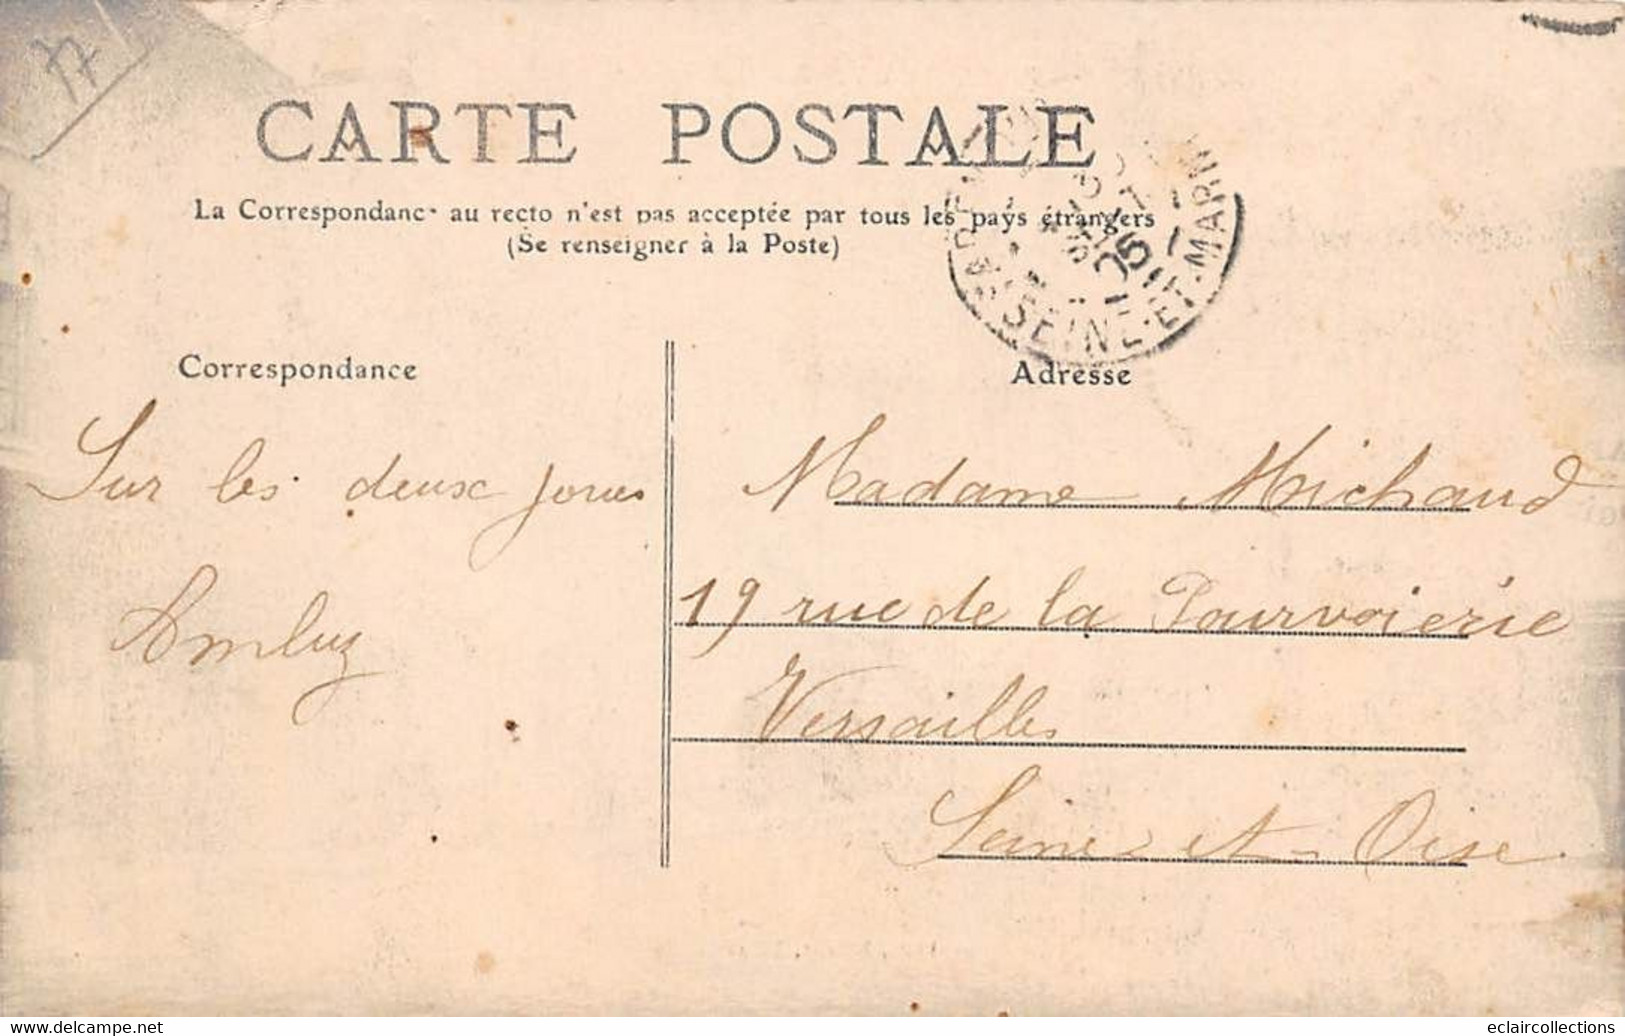 77
CARTE POSTALE
La Correspondance au recto n'est pas acceptée par tous les pays étrangers
(Se renseigner à la Poste)
05
SEINE-ET-MARNE
Correspondance
Adresse
Sur les deux joues
Madame Michaud
19 rue de la Pourvoierie
Versailles
Seine-et-Oise
www.delcampe.net
eclaircollections